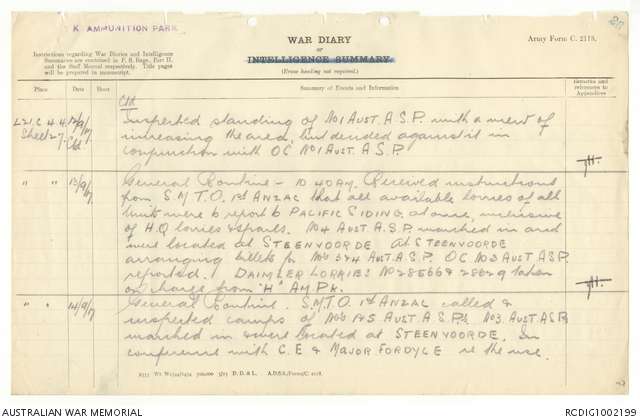 K AMMUNITION PARK
28
WAR DIARY
or
INTELLIGENCE SUMMARY
(Erase heading not required.)
Army Form C. 2118.
Instructions regarding War Diaries and Intelligence
Summaries are contained in F. S. Regs., Part II.
and the Staff Manual respectively. Title pages
will be prepared in manuscript.
Place Date Hour Summary of Events and Information Remarks and references to Appendices
Ctd
L21.C.4.4. 12/9/17 Inspected standing of No 1 AUST. A.S.P. with a view of
Sheet 27 Ctd increasing the area, but decided against it in
conjunction with OC No 1 AUST. A.S.P.
" " 13/9/17 General Routine - 10.40 AM. Received instructions
from S.M.T.O. 1st ANZAC that all available lorries of all
units were to report to PACIFIC SIDING at once, inclusive
of H.Q lorries & spares. No 4 AUST A.S.P. marched in and
were located at STEENVOORDE At STEENVOORDE
arranging billets for Nos 3 & 4 AUST. A.S.P. OC No 3 AUST A.S.P
reported. DAIMLER LORRIES No 28566 & 28629 taken
on charge from "H" AM Pk.
" " 14/9/17 General Routine. S.M.T.O. 1st ANZAC called &
inspected camps of Nos 1 & 5 AUST. A.S.Ps. No 3 AUST A.S.P.
marched in & were located at STEENVOORDE. In
conference with C.E & MAJOR FORDYCE re the use.
D. D. & L. A.D.S.S./Forms/C. 2118.
AUSTRALIAN WAR MEMORIAL
RCDIG1002199